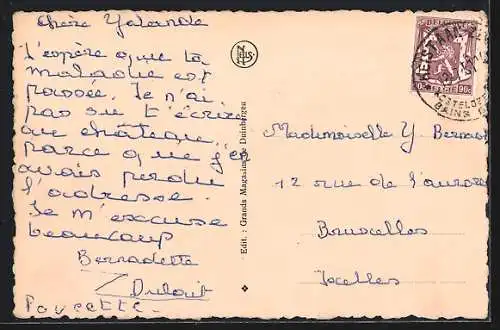 Chère Yolande
J'espère que ta
maladie est
passée. Je n'ai
pas su t'écrire
au château
parce que j'en
avais perdu
l'adresse.
Je m'excuse
beaucoup
Bernadette
Poucette.
NELS
Edit. : Grands Magasins de Duinbergen
BELGIQUE
90c
BELGIE
BAINS
Mademoiselle Y
12 rue de l'aurore
Bruxelles
Ixelles